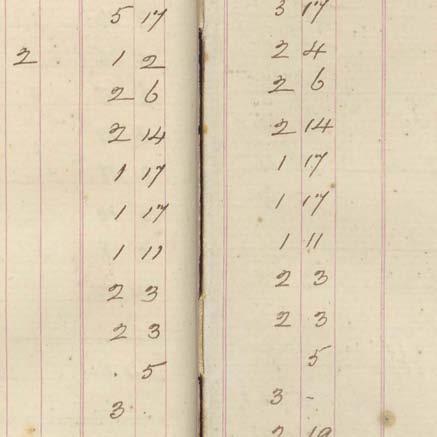 5 17 3 17
2 1 2 2 4
2 6 2 6
2 14 2 14
1 17 1 17
1 17 1 17
1 11 1 11
2 3 2 3
2 3 2 3
. 5 5
3 . 3 -
2 19